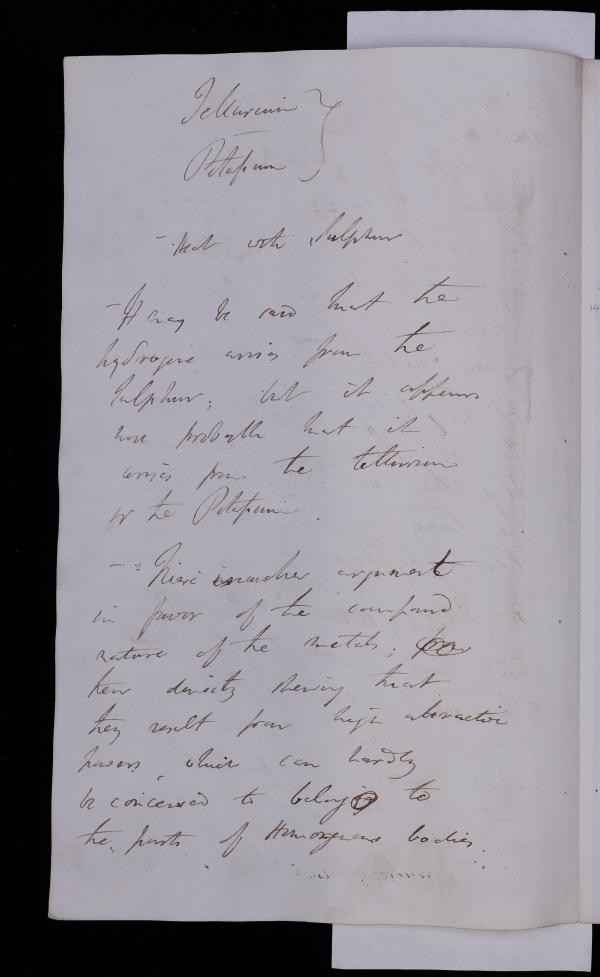 Tellurium }
Potassium
- Heat with Sulphur
- It may be said that the
hydrogene arises from the
Sulphur; but it appears
more probable that it
arises from the tellurium
or the Potassium.
- There is another argument
in favor of the compound
nature of the metals;
their density shewing that
they result from high attractive
powers, which can hardly
be conceived to belong to
the parts of Homogeneous bodies.